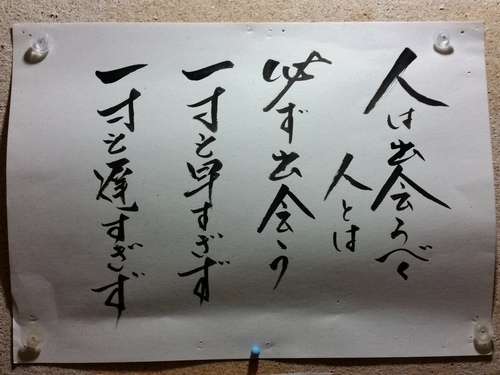 人は出会うべく
人とは
必ず出会う
一寸と早すぎず
一寸と遅すぎず